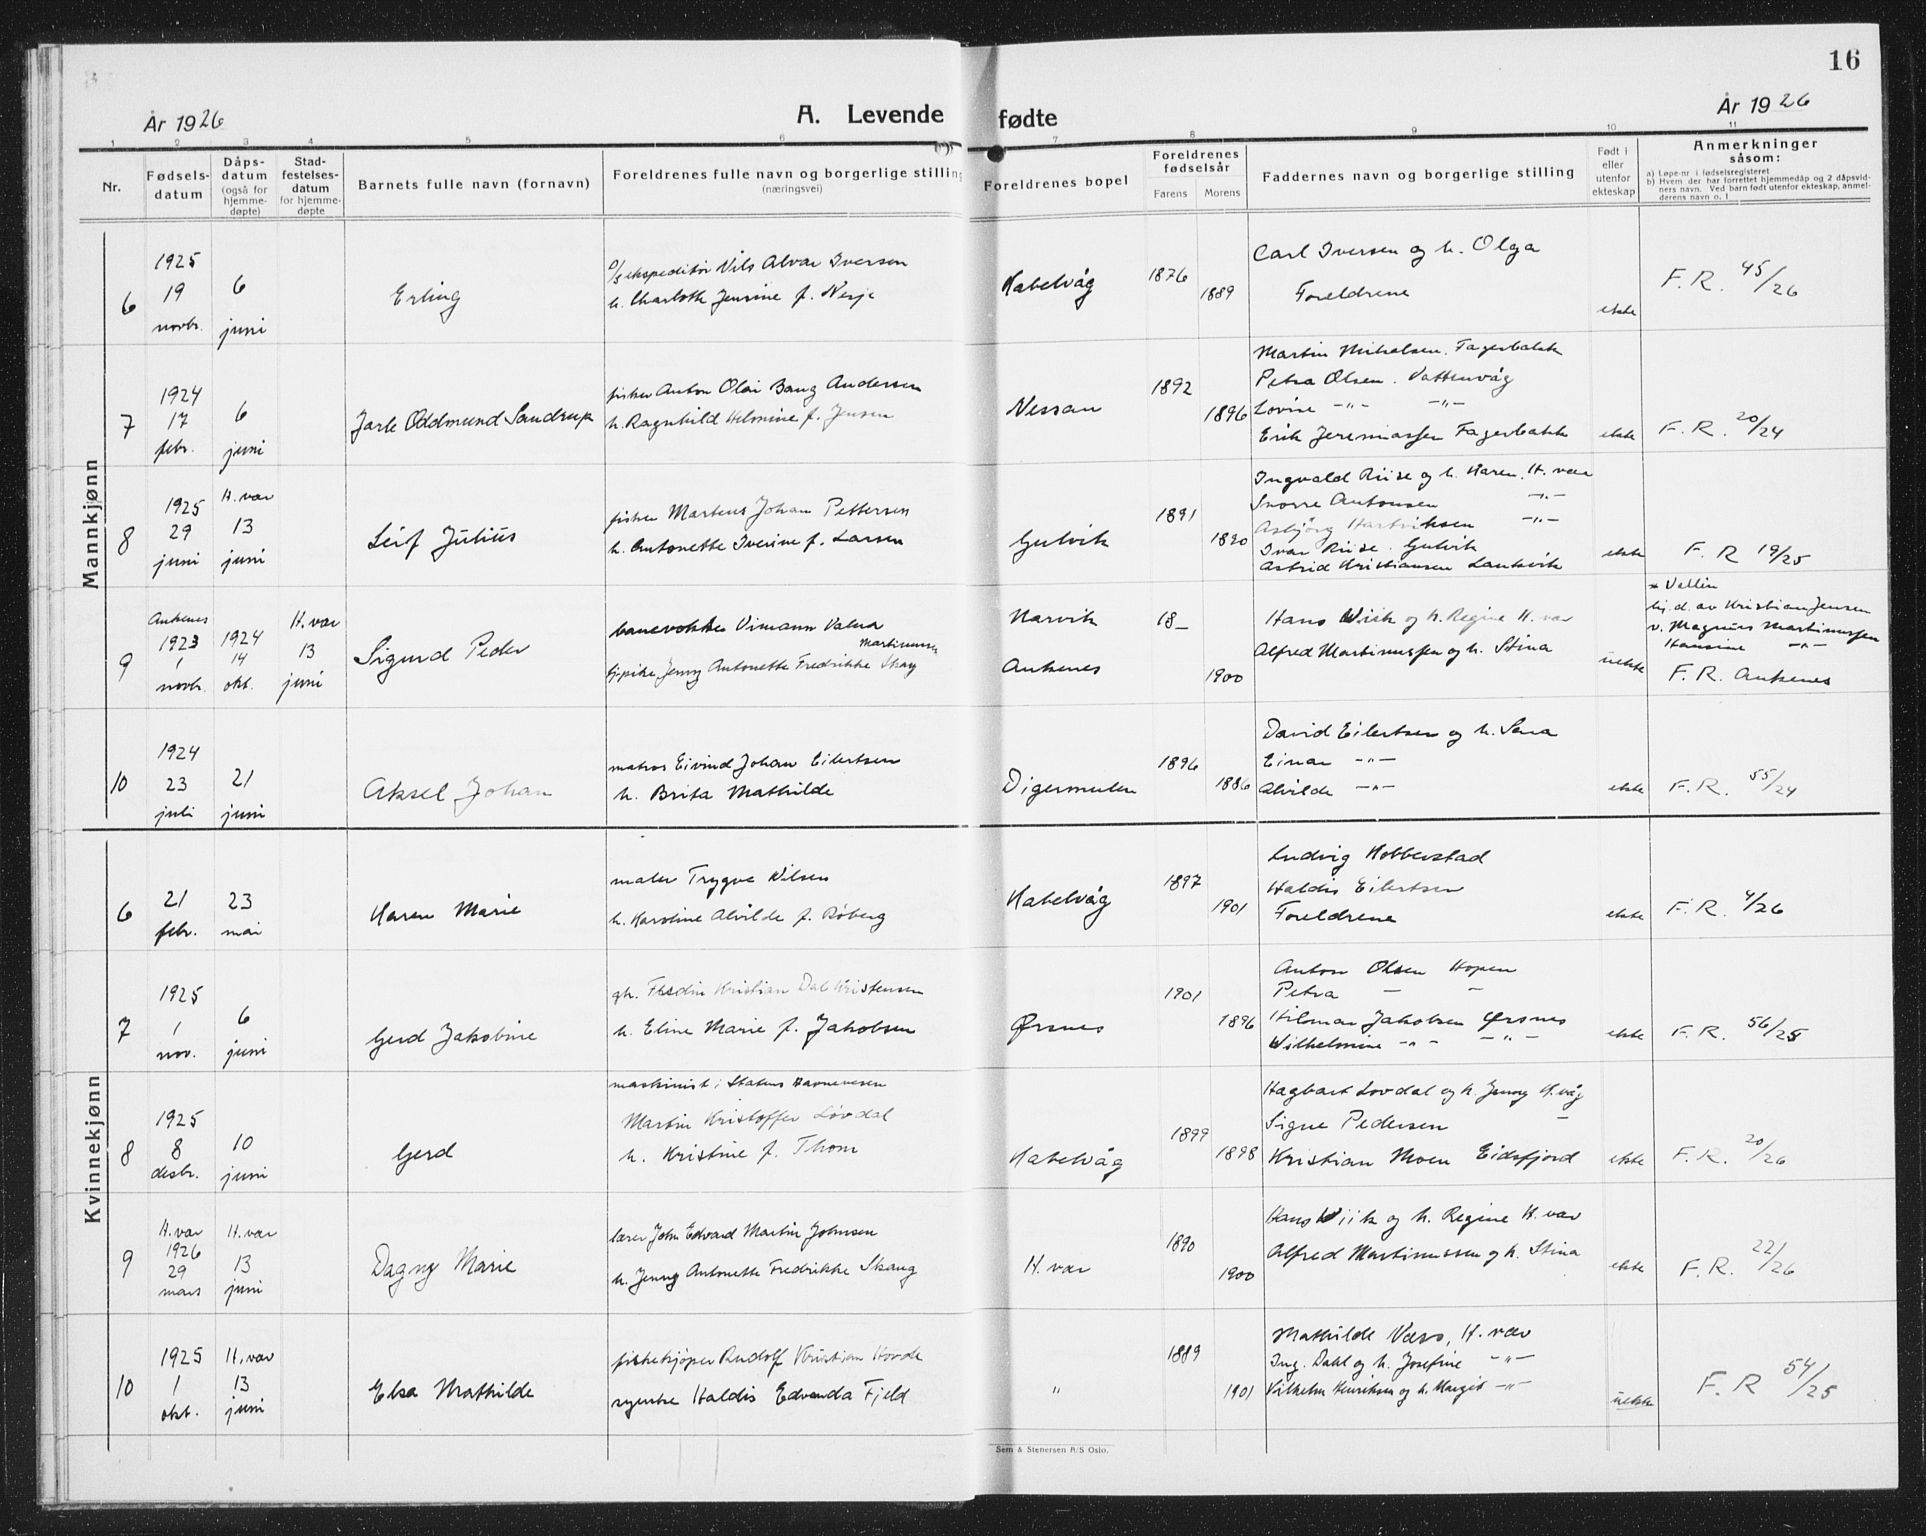 16
År 1926
A. Levende fødte
År 1926
1 2 3 4 5 6 7 8 9 10 11
Nr.
Fødsels-
datum
Dåps-
datum
(også for
hjemme-
døpte)
Stad-
festelses-
datum
for hjemme-
døpte
Barnets fulle navn (fornavn)
Foreldrenes fulle navn og borgerlige stilling
(næringsvei)
Foreldrenes bopel
Foreldrenes
fødselsår
Farens Morens
Faddernes navn og borgerlige stilling
Født i
eller
utenfor
ekteskap
Anmerkninger
såsom:
a) Løpe-nr i fødselsregisteret
b) Hvem der har forrettet hjemmedåp og 2 dåpsvid-
ners navn. Ved barn født utenfor ekteskap, anmel-
derens navn o. l
Mannkjønn
6
1925
19
novbr.
6
juni
Erling
ekspeditør Nils Alvar Iversen
h. Charlotte Jensine f. Nesje
Kabelvåg
1876
1889
Carl Iversen og h. Olga
Foreldrene
ekte
F. R. 45/26
7
1924
17
febr.
6
juni
Jarle Oddmund Sandrup
fisker Anton Olai Bang Andersen
h. Ragnhild Helmine f. Jensen
Nessan
1892
1896
Martin Mikelsen. Fagerbakk
Petra Olsen. Vattenvåg
Lovise -"- -"-
Erik Jeremiassen Fagerbakk
ekte
F. R. 20/24
8
1925
29
juni
H. vær
13
juni
Leif Julius
fisker Martens Johan Pettersen
h. Antonette Iverine f. Larsen
Gulvik
1891
1890
Ingvald Riise og h. Karen. H. vær
Snorre Antonsen -"-
Asbjørg Hartviksen -"-
Ivar Riise. Gulvik
Astrid Kristiansen Laukvik
ekte
F. R 19/25
9
Ankenes
1923
1
novbr.
1924
14
okt.
H. vær
13
juni
Sigurd Peder
banevokter Vimann Valena
Martinussen
pike Jenny Antonette Fredrikke Skaug
Narvik
Ankenes
18_
1900
Hans Wiik og h. Regine H. vær
Alfred Martinussen og h. Stina
uekte
hj. d. av Kristian Jensen
v. Magnus Martinussen
Hansine -"-
F. R. Ankenes
10
1924
23
juli
21
juni
Aksel Johan
matros Eivind Johan Eilertsen
h. Brita Mathilde
Digermulen
1896
1886
David Eilertsen og h. Sena
Einar -"-
Alvilde -"-
ekte
F. R. 55/24
Kvinnekjønn
6
21
febr.
23
mai
Karen Marie
maler Trygve Nilsen
h. Karoline Alvilde f. Røberg
Kabelvåg
1897
1901
Ludvig Hobberstad
Haldis Eilertsen
Foreldrene
ekte
F. R. 4/26
7
1925
1
nov.
6
juni
Gerd Jakobine
Fredin Kristian Dal Kristensen
h. Eline Marie f. Jakobsen
Ørsnes
1901
1896
Anton Olsen Hopen
Petra - "
Hilmar Jakobsen Ørsnes
Wilhelmine -"- -"-
ekte
F. R. 56/25
8
1925
8
desbr.
10
juni
Gerd
maskinist i Statens Havnevesen
Martin Kristoffer Løvdal
h. Kristine f. Thom
Kabelvåg
1899
1898
Hagbart Lovdal og h. Jenny K.våg
Signe Pedersen -
Kristian Moen Eidsfjord
ekte
F. R. 20/26
9
H. vær
1926
29
mars
H. vær
13
juni
Dagny Marie
lærer John Edvard Martin Johnsen
h. Jenny Antonette Fredrikke Skaug
H. vær
1890
1900
Hans Wiik og h. Regine H. vær
Alfred Martinussen og h. Stina
ekte
F. R. 22/26
10
1925
1
okt.
H. vær
13
juni
Elsa Mathilde
fiskekjøper Rudolf Kristian Hovde
syerske Haldis Edvanda Fjeld
"
1889
1901
Mathilde Næss, H. vær
Ing. Dahl og h. Josefine -"-
Vilhelm Henriksen og h. Margit -"-
uekte
F. R 54/25
Sem & Stenersen A/S Oslo.